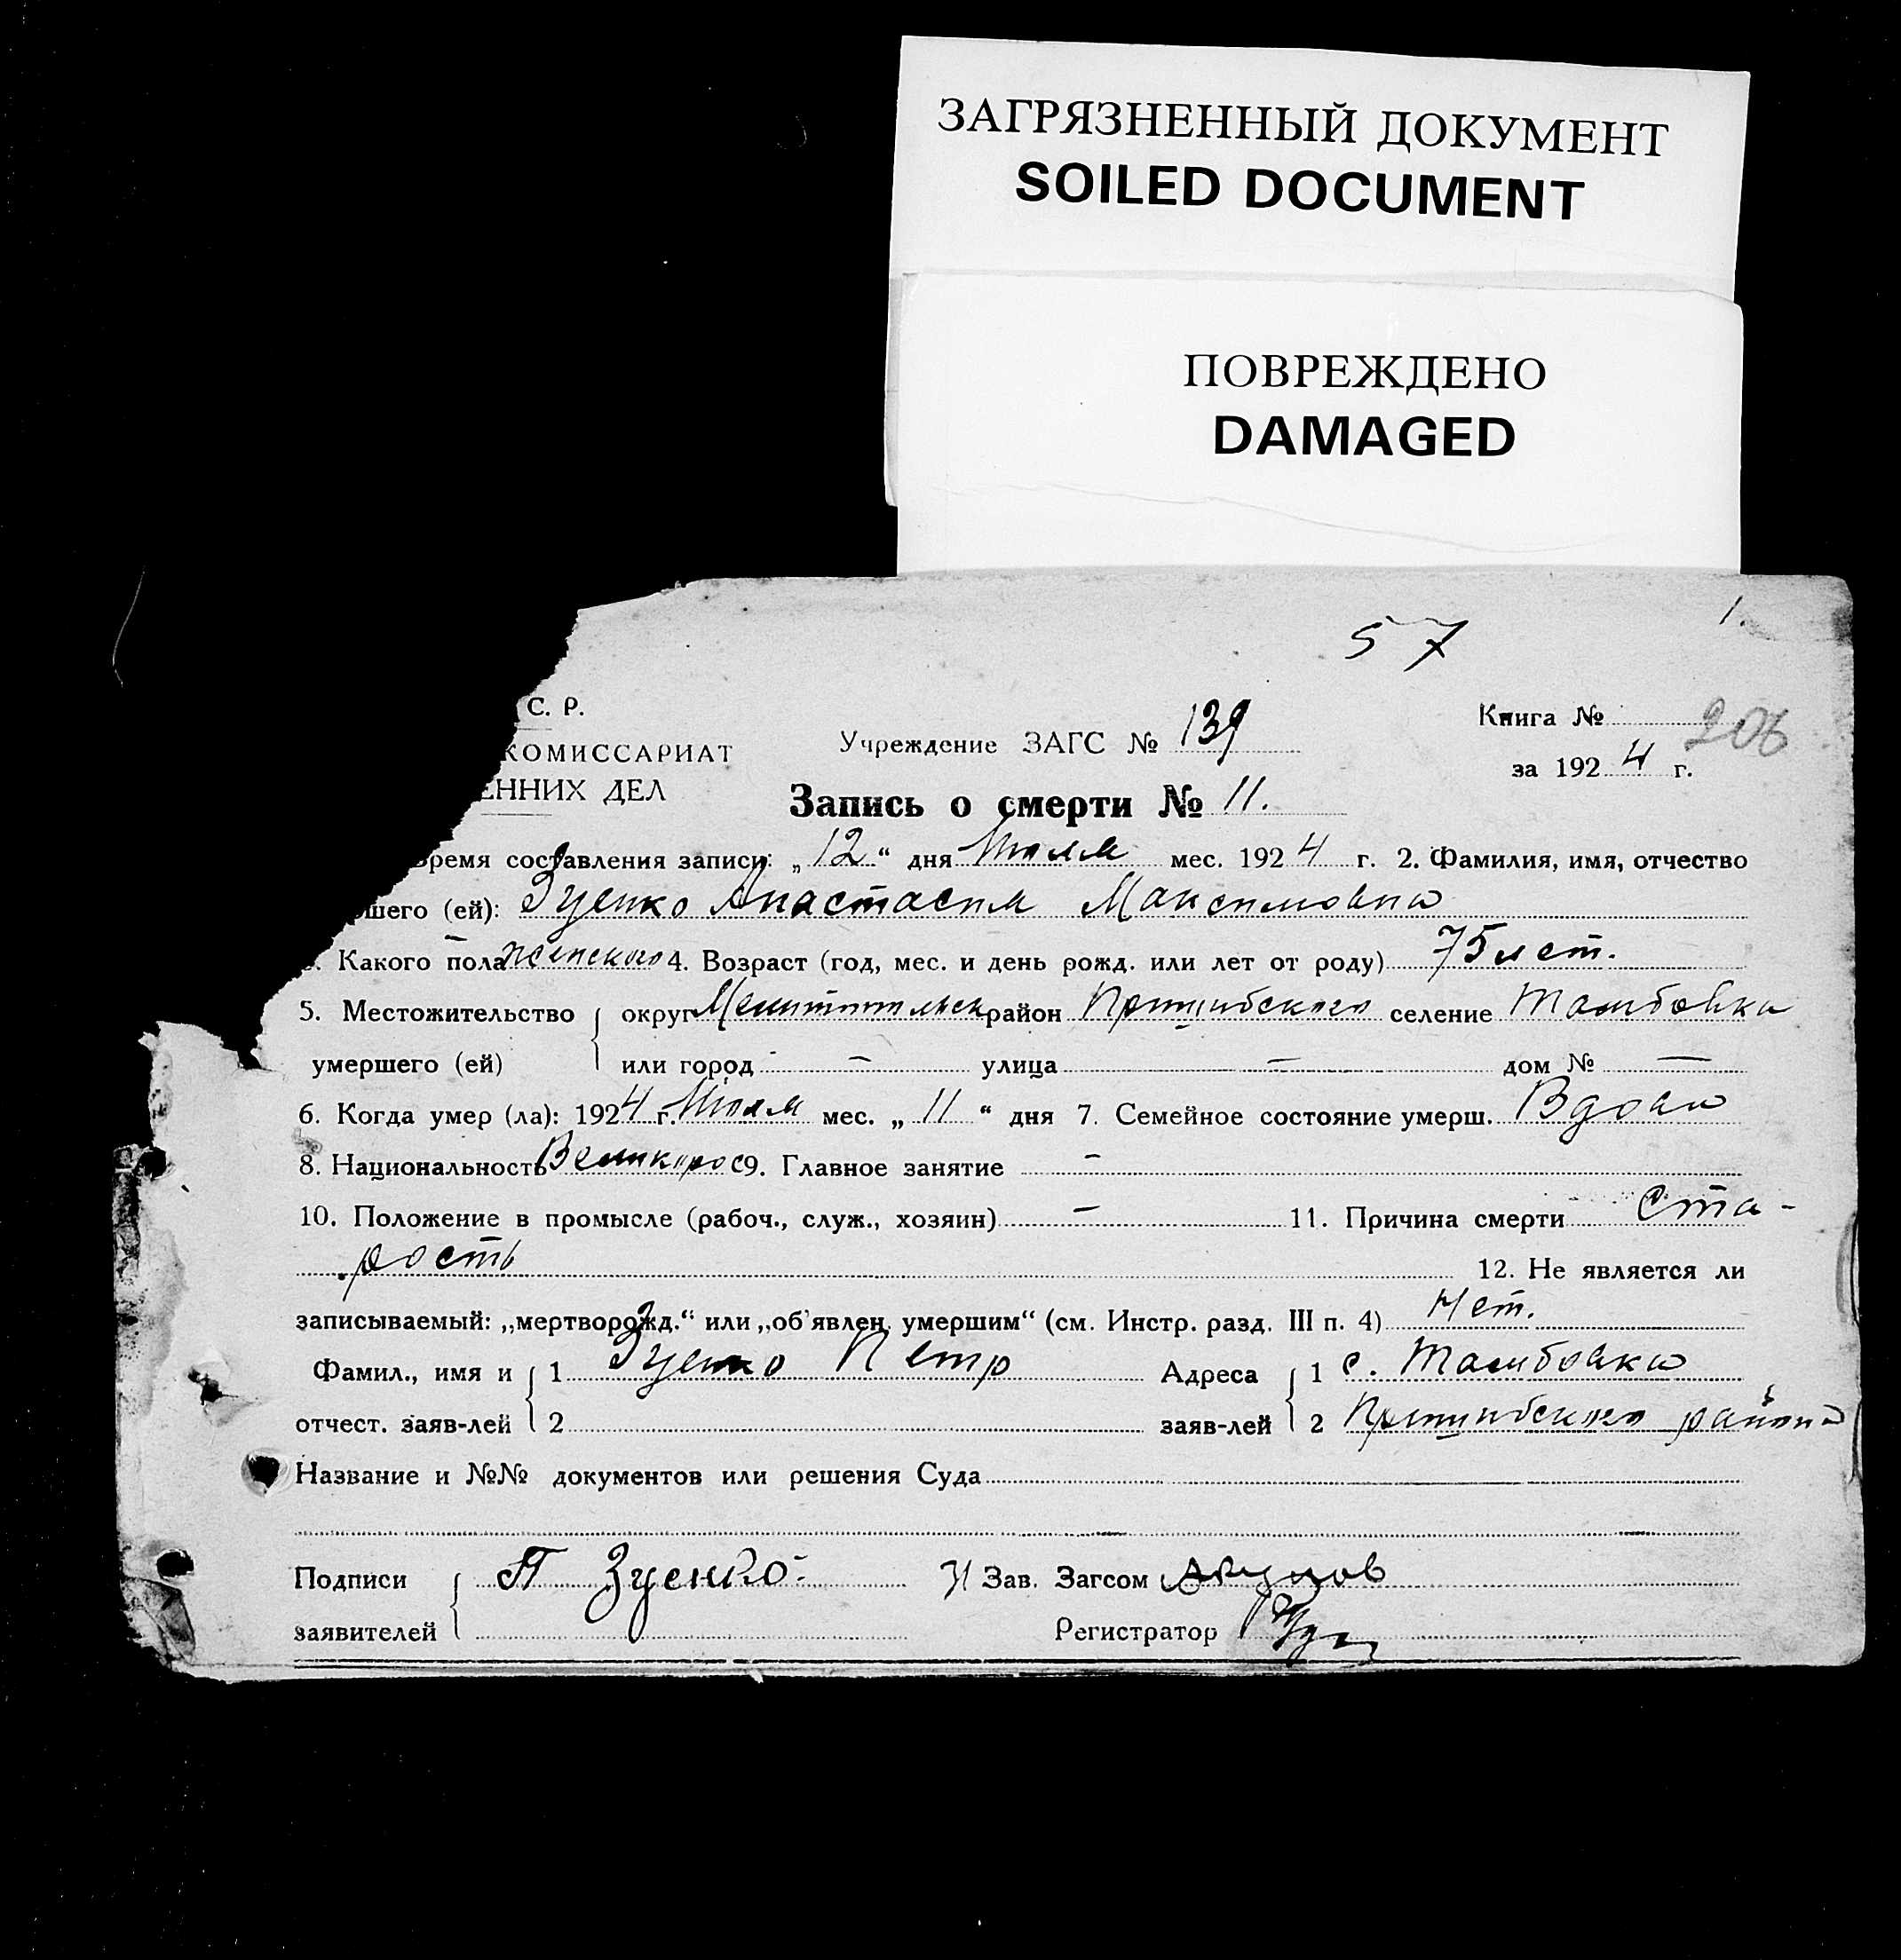 ЗАГРЯЗНЕННЫЙ ДОКУМЕНТ
SOILED DOCUMENT
ПОВРЕЖДЕНО
DAMAGED
1.
57
С. Р.
КОМИССАРИАТ
ЕННИХ ДЕЛ
Учреждение ЗАГС № 139
Книга № 206
за 1924 г.
Запись о смерти № 11.
время составления записи: „12“ дня Июля мес. 1924 г. 2. Фамилия, имя, отчество
шего (ей): Зуенко Анастасия Максимовна
3. Какого пола женского 4. Возраст (год, мес. и день рожд. или лет от роду) 75 лет.
5. Местожительство умершего (ей) округ Мелитопольск район Пришибского селение Тамбовка
или город — улица — дом № —
6. Когда умер (ла): 1924 г. Июля мес. „11“ дня 7. Семейное состояние умерш. Вдова
8. Национальность Великорос 9. Главное занятие —
10. Положение в промысле (рабоч., служ., хозяин) — 11. Причина смерти Ста-
рость 12. Не является ли
записываемый: „мертворожд.“ или „об'явлен. умершим“ (см. Инстр. разд. III п. 4) Нет.
Фамил., имя и отчест. заяв-лей 1 Зуенко Петр Адреса заяв-лей 1 с. Тамбовка
2 2 Пришибского района
Название и №№ документов или решения Суда
Подписи заявителей П Зуенко. Зав. Загсом
Регистратор